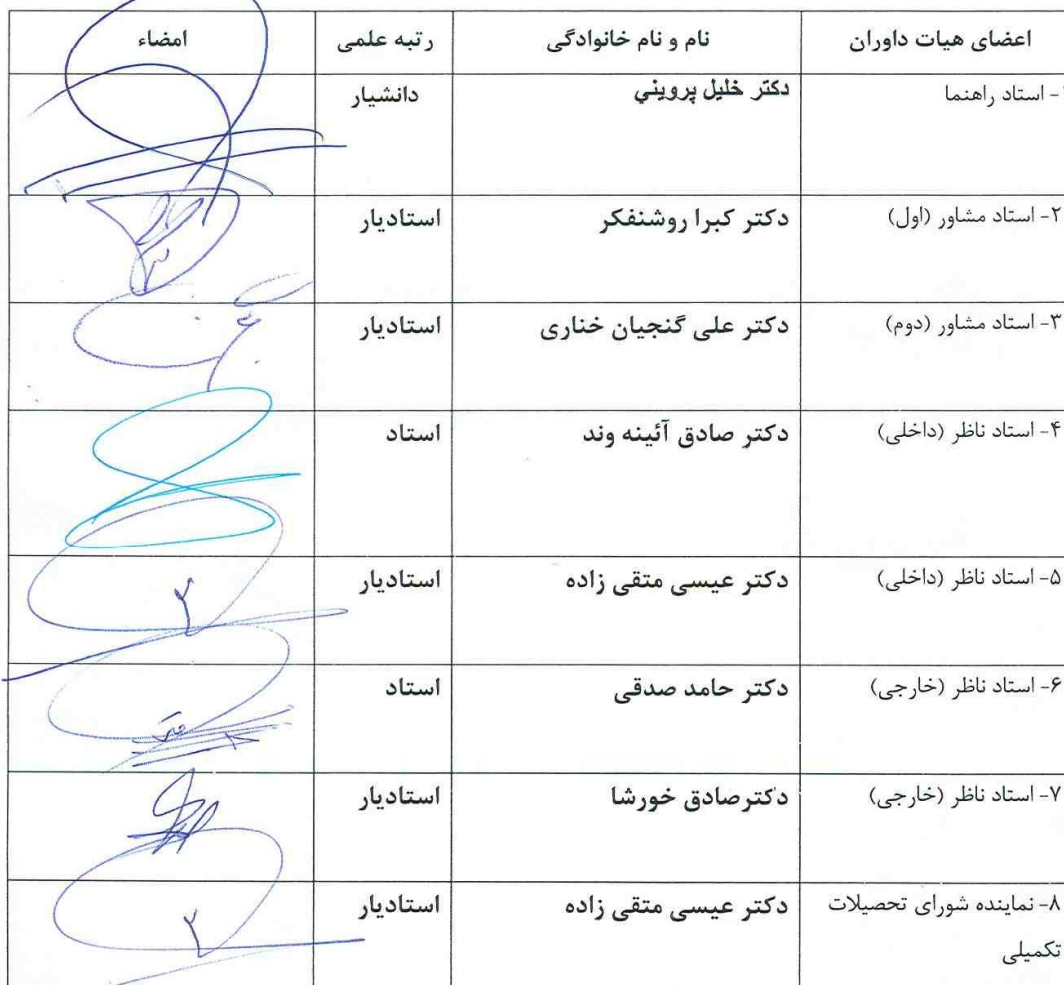 اعضای هیات داوران نام و نام خانوادگی رتبه علمی امضاء
- استاد راهنما دکتر خلیل پرویني دانشیار
۲- استاد مشاور (اول) دکتر کبرا روشنفکر استادیار
۳- استاد مشاور (دوم) دکتر علی گنجیان خناری استادیار
۴- استاد ناظر (داخلی) دکتر صادق آئینه وند استاد
۵- استاد ناظر (داخلی) دکتر عیسی متقی زاده استادیار
۶- استاد ناظر (خارجی) دکتر حامد صدقی استاد
۷- استاد ناظر (خارجی) دکترصادق خورشا استادیار
۸- نماینده شورای تحصیلات دکتر عیسی متقی زاده استادیار
تکمیلی